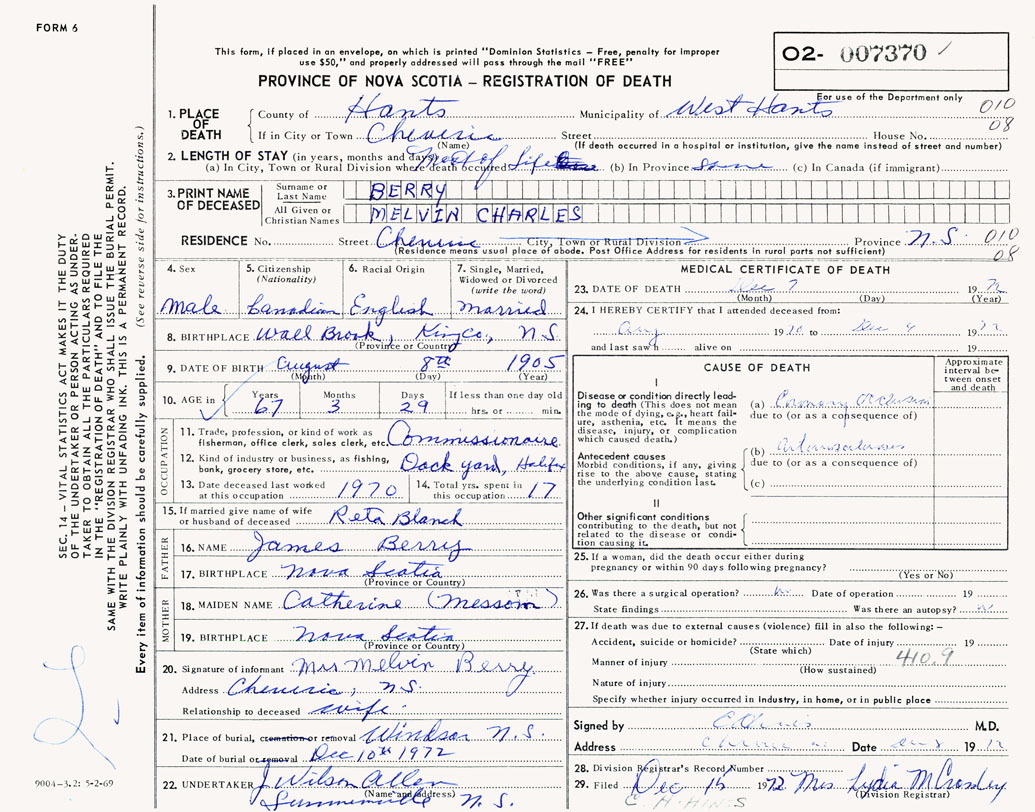 FORM 6
This form, if placed in an envelope, on which is printed "Dominion Statistics – Free, penalty for improper
use $50," and properly addressed will pass through the mail "FREE"
PROVINCE OF NOVA SCOTIA – REGISTRATION OF DEATH
O2- 007370
For use of the Department only
010
08
1. PLACE OF DEATH
County of Hants Municipality of West Hants
If in City or Town Cheverie Street House No.
(Name) (If death occurred in a hospital or institution, give the name instead of street and number)
2. LENGTH OF STAY (in years, months and days) most of life
(a) In City, Town or Rural Division where death occurred (b) In Province same (c) In Canada (if immigrant)
3. PRINT NAME OF DECEASED
Surname or Last Name BERRY
All Given or Christian Names MELVIN CHARLES
RESIDENCE No. Street Cheverie City, Town or Rural Division Province N.S. 010
(Residence means usual place of abode. Post Office Address for residents in rural parts not sufficient) 08
4. Sex
Male
5. Citizenship (Nationality)
Canadian
6. Racial Origin
English
7. Single, Married, Widowed or Divorced (write the word)
Married
8. BIRTHPLACE Wall Brook, King Co, N.S.
(Province or Country)
9. DATE OF BIRTH August 8th 1905
(Month) (Day) (Year)
10. AGE in Years Months Days If less than one day old
67 3 29 hrs. or min.
OCCUPATION
11. Trade, profession, or kind of work as fisherman, office clerk, sales clerk, etc. Commissionaire
12. Kind of industry or business, as fishing, bank, grocery store, etc. Dock yard, Halifax
13. Date deceased last worked at this occupation 1970
14. Total yrs. spent in this occupation 17
15. If married give name of wife or husband of deceased Reta Blanch
FATHER
16. NAME James Berry
17. BIRTHPLACE Nova Scotia
(Province or Country)
MOTHER
18. MAIDEN NAME Catherine (Messom)
19. BIRTHPLACE Nova Scotia
(Province or Country)
20. Signature of informant Mrs Melvin Berry
Address Cheverie, N.S.
Relationship to deceased wife.
21. Place of burial, cremation or removal Windsor N.S.
Date of burial or removal Dec 10th 1972
22. UNDERTAKER J. Wilson Allen
(Name and Address)
Summerville N.S.
MEDICAL CERTIFICATE OF DEATH
23. DATE OF DEATH Dec 7 1972
(Month) (Day) (Year)
24. I HEREBY CERTIFY that I attended deceased from:
19 to Dec 19
and last saw h alive on 19
CAUSE OF DEATH
Approximate interval between onset and death
I
Disease or condition directly leading to death (This does not mean the mode of dying, e.g., heart failure, asthenia, etc. It means the disease, injury, or complication which caused death.)
(a) Coronary Occlusion
due to (or as a consequence of)
Antecedent causes
Morbid conditions, if any, giving rise to the above cause, stating the underlying condition last.
(b)
due to (or as a consequence of)
(c)
II
Other significant conditions contributing to the death, but not related to the disease or condition causing it.
25. If a woman, did the death occur either during pregnancy or within 90 days following pregnancy?
(Yes or No)
26. Was there a surgical operation? Date of operation 19
State findings Was there an autopsy?
27. If death was due to external causes (violence) fill in also the following: –
Accident, suicide or homicide? Date of injury 19
(State which)
Manner of injury 410.9
(How sustained)
Nature of injury
Specify whether injury occurred in industry, in home, or in public place
Signed by M.D.
Address Date 19
28. Division Registrar's Record Number
29. Filed Dec 15 1972 Mrs. Lydia M Crossley
(Division Registrar)
C. H. HINES
SEC. 14 – VITAL STATISTICS ACT MAKES IT THE DUTY
OF THE UNDERTAKER OR PERSON ACTING AS UNDER-
TAKER TO OBTAIN ALL THE PARTICULARS REQUIRED
IN THE "REGISTRATION OF DEATH" AND TO FILE THE
SAME WITH THE DIVISION REGISTRAR WHO SHALL ISSUE THE BURIAL PERMIT.
WRITE PLAINLY WITH UNFADING INK. THIS IS A PERMANENT RECORD.
Every item of information should be carefully supplied. (See reverse side for instructions.)
9004–3.2: 5-2-69